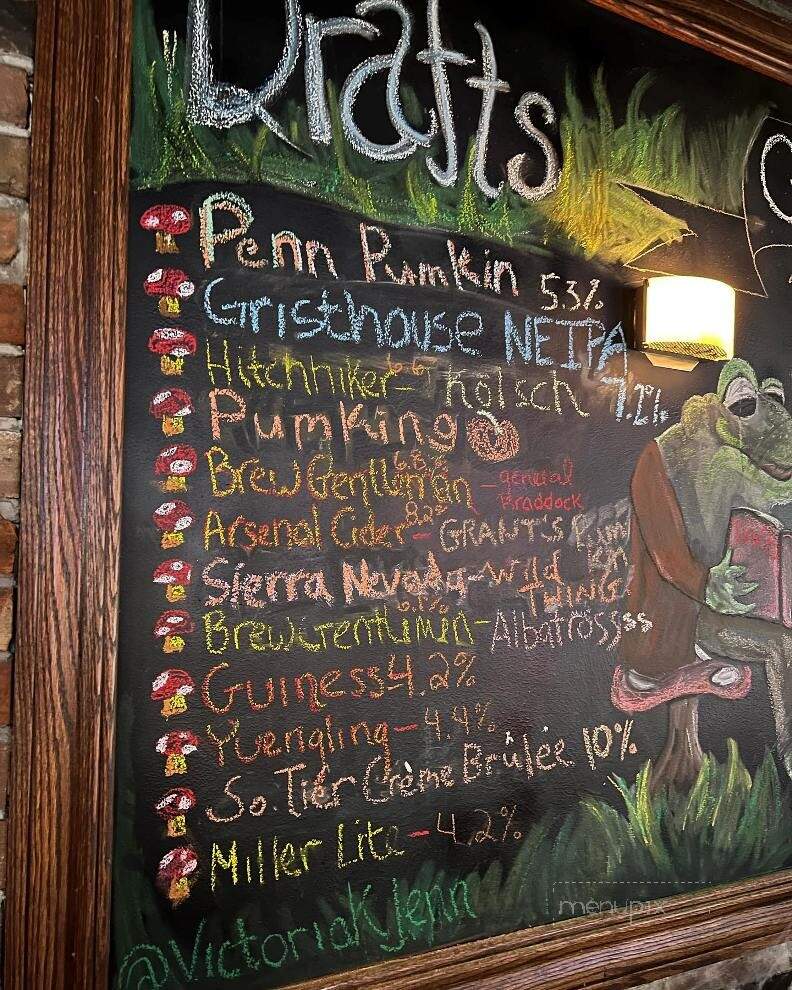 Drafts
Penn Pumkin 5.3%
Gristhouse NEIPA
7.2%
Hitchhiker - Kölsch
Pumking
Brew Gentlemen - general
Braddock
8.2%
Arsenal Cider - GRANT'S
Sierra Nevada - Wild
THING
Brew Gentlemen - Albatross
Guiness 4.2%
Yuengling - 4.4%
So. Tier Crème Brûlée 10%
Miller Lite - 4.2%
@VictoriaKJenn
menupix